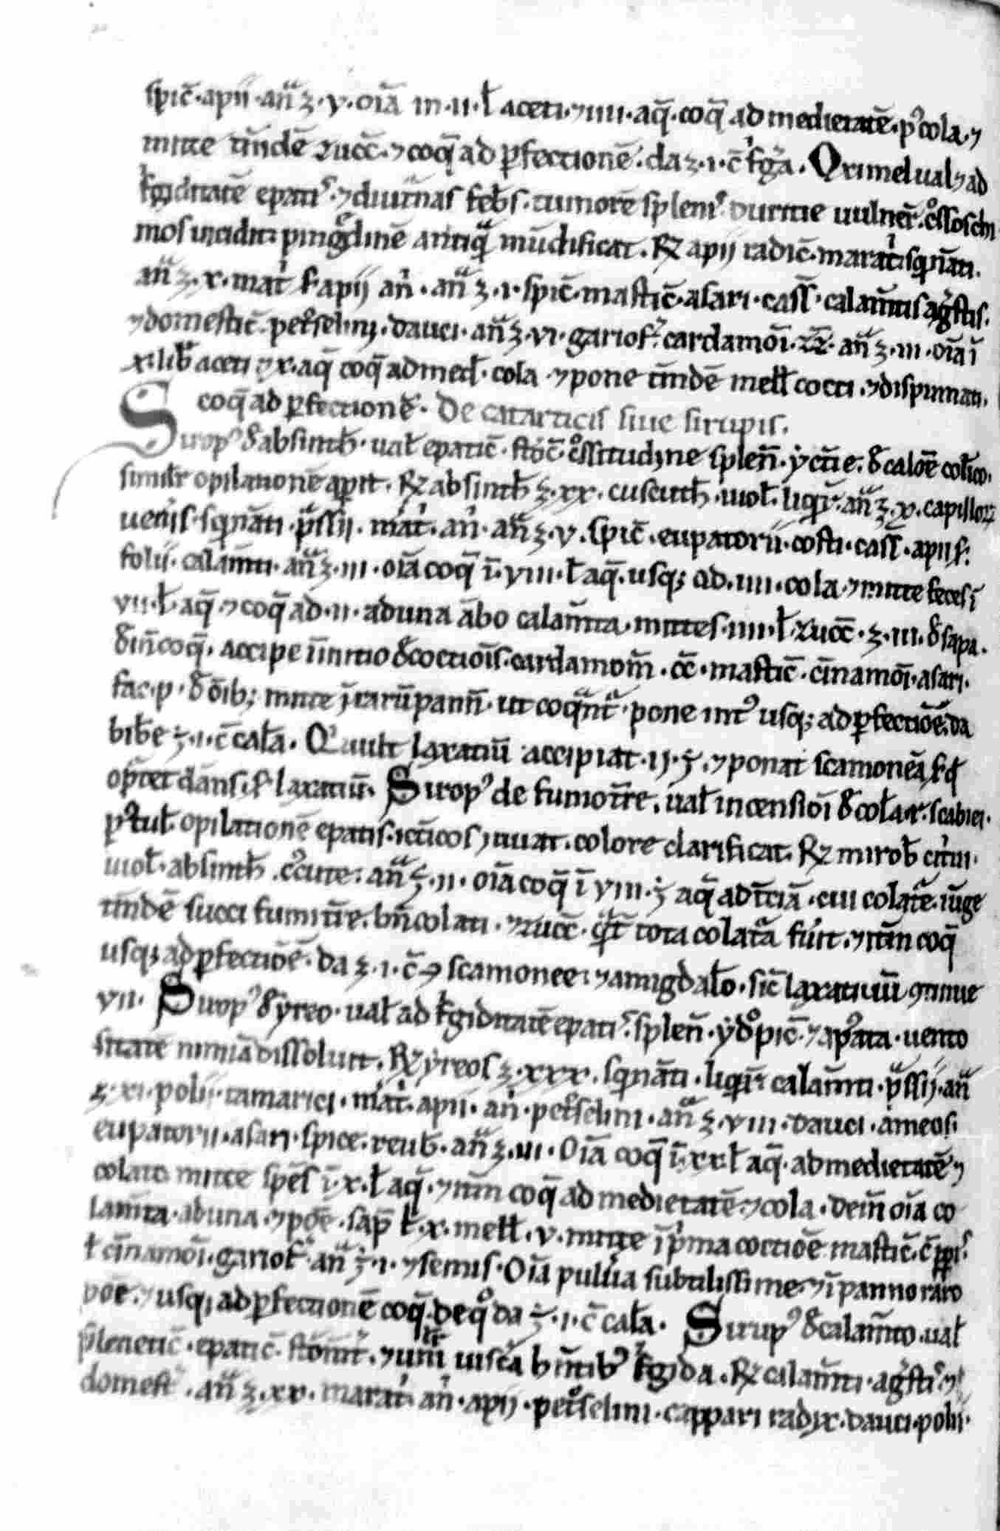 spic̄·apii·an̄ ʒ·v·oīa in·ii·ł aceti·⁊iiii·aq̄·coq̄ ad medietatē·p᷒ cola·⁊
mitte tn̄dē zucc̄·⁊coq̄ ad ꝑfectionē·da ʒ·i·c̄ frig̃a·Oximel ual⁊ ad
frigiditatē epatis·⁊diut̃nas febs·tumorē splenis duritie uulner̄·
mos incidit pingᵒdinē antiqᵃ mūdificat·℞ apii radic̄·marat̃ squināti·
an̄ ʒ·x·mat̃ s·apii an̄·an̄ ʒ·i·spic̄·mastic̄·asari·cass̄·calam̄tis agrestis·
⁊domestic̄·pet̃selini·dauci·an̄ ʒ·vi·gariof·cardamoī·zz̄·an̄ ʒ·iii·oīa ī
x·lib̄ aceti ⁊x·aq̄ coq̄ ad med̄·cola·⁊pone tn̄dē mell̄ cocti·⁊dispumati·
coq̄ ad ꝑfectionē·De catarticis siue sirupis·
Sirop᷒ đ absinth̄·ual̄ epatic̄·stoc̄· splen̄·
simil̃r opilationē apit·℞ absinth̄ ʒ·xx·cuscuth̄·uiol̄·liqr̄·an̄ ʒ·x·capilloꝝ
uen̄is·squināti·pssii·mat̃·an̄·an̄ ʒ·v·spic̄·eupatorii·costi·cass̄·apii s·
folii·calam̄ti·an̄ ʒ·iii·oīa coq̄ ī·viii·ł aq̄·usqꝫ ad·iiii·cola·⁊mitte feces ī
vii·ł aq̄ ⁊coq̄ ad·ii·aduna ābo calam̄ta·mittes·iiii·ł zucc̄·ʒ·iii·đ sapa·
đin̄ coq̄·accipe īinitio đcoctiōis·cardamom̄·cc̄·mastic̄·cīnamoī·asari·
fac·p·đ oīb;mitte ī rarū pann̄·ut coqn̄t᷑·pone int᷒ usqꝫ ad ꝑfectiōē·da
bibe ℥·i·c̄ cal̄a·Q̇ uult laxatiū accipiat·ii·℥·⁊ponat scamoneā
oportet dans·s laxatiū·Sirop᷒ de fumot̃re·ual̄ incensioī đ col̄a·scabiei·
prtul̄·opilationē epatis·icticos iuuat·colorē clarificat·℞ mirob̄ cit̃ni·
uiol̄·absinth̄·cuscute·an̄ ℥·ii·oīa coq̄ ī viii·℥ aq̄ ad t̃ciā·cui colat̃e·iūge
tn̄dē succi fumit̃re·bn̄ colati·⁊zucc̄·qᵃt̄ tota colatᵃa fūit·⁊itm̄ coq̄
usqꝫ ad ꝑfectiōē·da ʒ·i·c̄ scamonee·⁊amigdal̄o·sic̄ laxatiuū ꝯtinue
vii·Sirop᷒ đ yreo·ual̄ ad frigiditatē epatis·splen̄·ydropic̄·⁊apata·uento
sitatē nimiā dissoluit·℞ yreos ʒ·xxx·squināti·liqr̄·calam̄ti·pssii·an̄
ʒ·xi·polii·tamarici·mat̃·apii·an̄·pet̃selini·an̄ ʒ·viii·dauci·ameos·
eupatorii·asari·spice·reub̄·an̄ ʒ·iii·Oīa coq̄ ī·xx ł aq̄·ad medietatē·⁊
colato mitte spēs ī·x·ł aq̄·⁊itm̄ coq̄ ad medietatē·⁊cola·dein̄ oīa co
lam̄ta·aduna·⁊pōe·sap̄ ł·x·mell̄·v·mitte ī pima coctiōe mastic̄·c̄
ł cīnamoī·gariof·an̄ ℥·i·⁊semis·Oīa puluīa subtilissime·⁊ī panno raro
pōe·⁊usqꝫ ad ꝑfectionē coq̄·deqᵒ da ℥·i·c̄ cal̄a·Sirup᷒ đ calam̄to·ual̄
plenetic̄·epatic̄·stomat̃·⁊um̄ uisc̃a hn̄tib᷒ frigida·℞ calam̄ti·agrestis·⁊
domest̃·an̄ ʒ·xx·marat̃·an̄·apii·pet̃selini·cappari radix·dauci·polii·